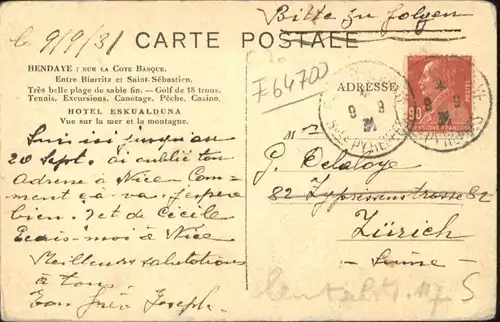 Bitte zu folgen
le 9/9/31
CARTE POSTALE
HENDAYE : SUR LA COTE BASQUE.
Entre Biarritz et Saint-Sébastien.
Très belle plage de sable fin. — Golf de 18 trous.
Tennis, Excursions, Canotage, Pêche, Casino.
HOTEL ESKUALDUNA
Vue sur la mer et la montagne.
Suis ici jusqu'au
20 Sept. ai oublié ton
adresse à Nice Com-
ment ça va. j'espère
bien. et de Cécile
Écris-moi à Nice
Meilleures salutations
à tous.
Ton frère Joseph.
F64700
ADRESSE
90
9 9
PYRENEES
M
G. Delaloye
82 Zypressenstrasse 82
Zürich
Suisse
S